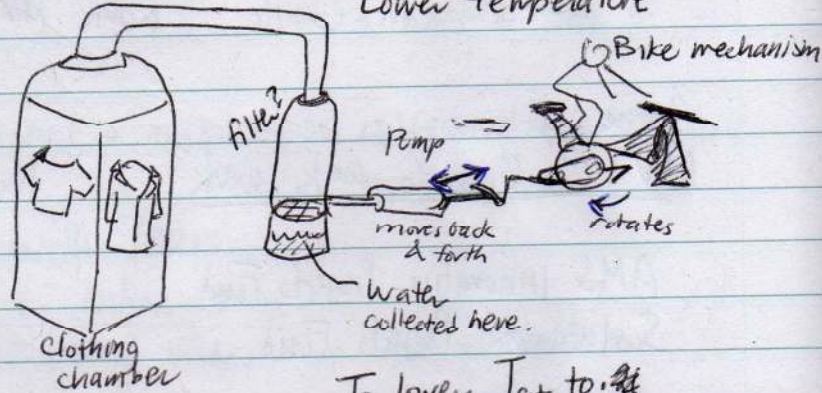 Lower Temperature
Bike mechanism
filter?
Pump
moves back
& forth
rotates
Water
collected here.
Clothing
chamber
To lower
to